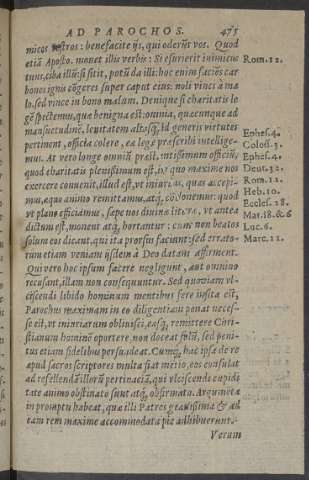 AD PAROCHOS. 475
micos vestros: benefacite ijs, qui oderũt vos. Quod
etiã Aposto. monet illis verbis: Si esurierit inimicus
tuus, ciba illũ: si sitit, potũ da illi: hoc enim faciẽs car
bones ignis cõgeres super caput eius: noli vinci à ma
lo, sed vince in bono malum. Denique si charitatis le
gẽ spectemus, quæ benigna est: omnia, quæcunque ad
mansuetudinẽ, lenitatem aliasq́; id generis virtutes
pertinent, officia colere, ea lege præscribi intellige-
mus. At vero longe omniũ præst, ntissimum officiũ,
quod charitatis plenissimum est, in quo maxime nos
exercere conuenit, illud est, vt iniurias, quas accepi-
mus, æquo animo remittamus, atq́; cõdonemus: quod
vt plane efficiamus, sæpe nos diuinæ literæ, vt antea
dictum est, monent atq́; hortantur: cum non beatos
solum eos dicant, qui ita prorsus faciunt: sed errato-
rum etiam veniam ijsdem à Deo datam affirment.
Qui vero hoc ipsum facere neglegunt, aut omnino
recusant, illam non consequuntur. Sed quoniam vl-
ciscendi libido hominum mentibus fere insita est,
Parochus maximam in eo diligentiam ponat neces-
se est, vt iniuriarum obliuisci, easq́; remittere Chri-
stianum hominẽ oportere, non doceat solũ, sed peni-
tus etiam fidelibus persuadeat. Cumq́; hac ipsa de re
apud sacros scriptores multa fiat metio, eos consulat
ad refellendã illorũ pertinaciã, qui vlciscendi cupidi
tate animo obstinato sunt atq́; obfirmato. Argumẽta
in promptu habeat, quæ illi Patres grauissima & ad
eam rem maxime accommodata pie adhibuerunt.
Verum
Rom. 12.
Ephes. 4.
Coloss. 3.
Ephes. 4.
Deut. 32.
Rom. 12.
Heb. 10.
Eccles. 28.
Mat. 18. & 6
Luc. 6.
Marc. 11.